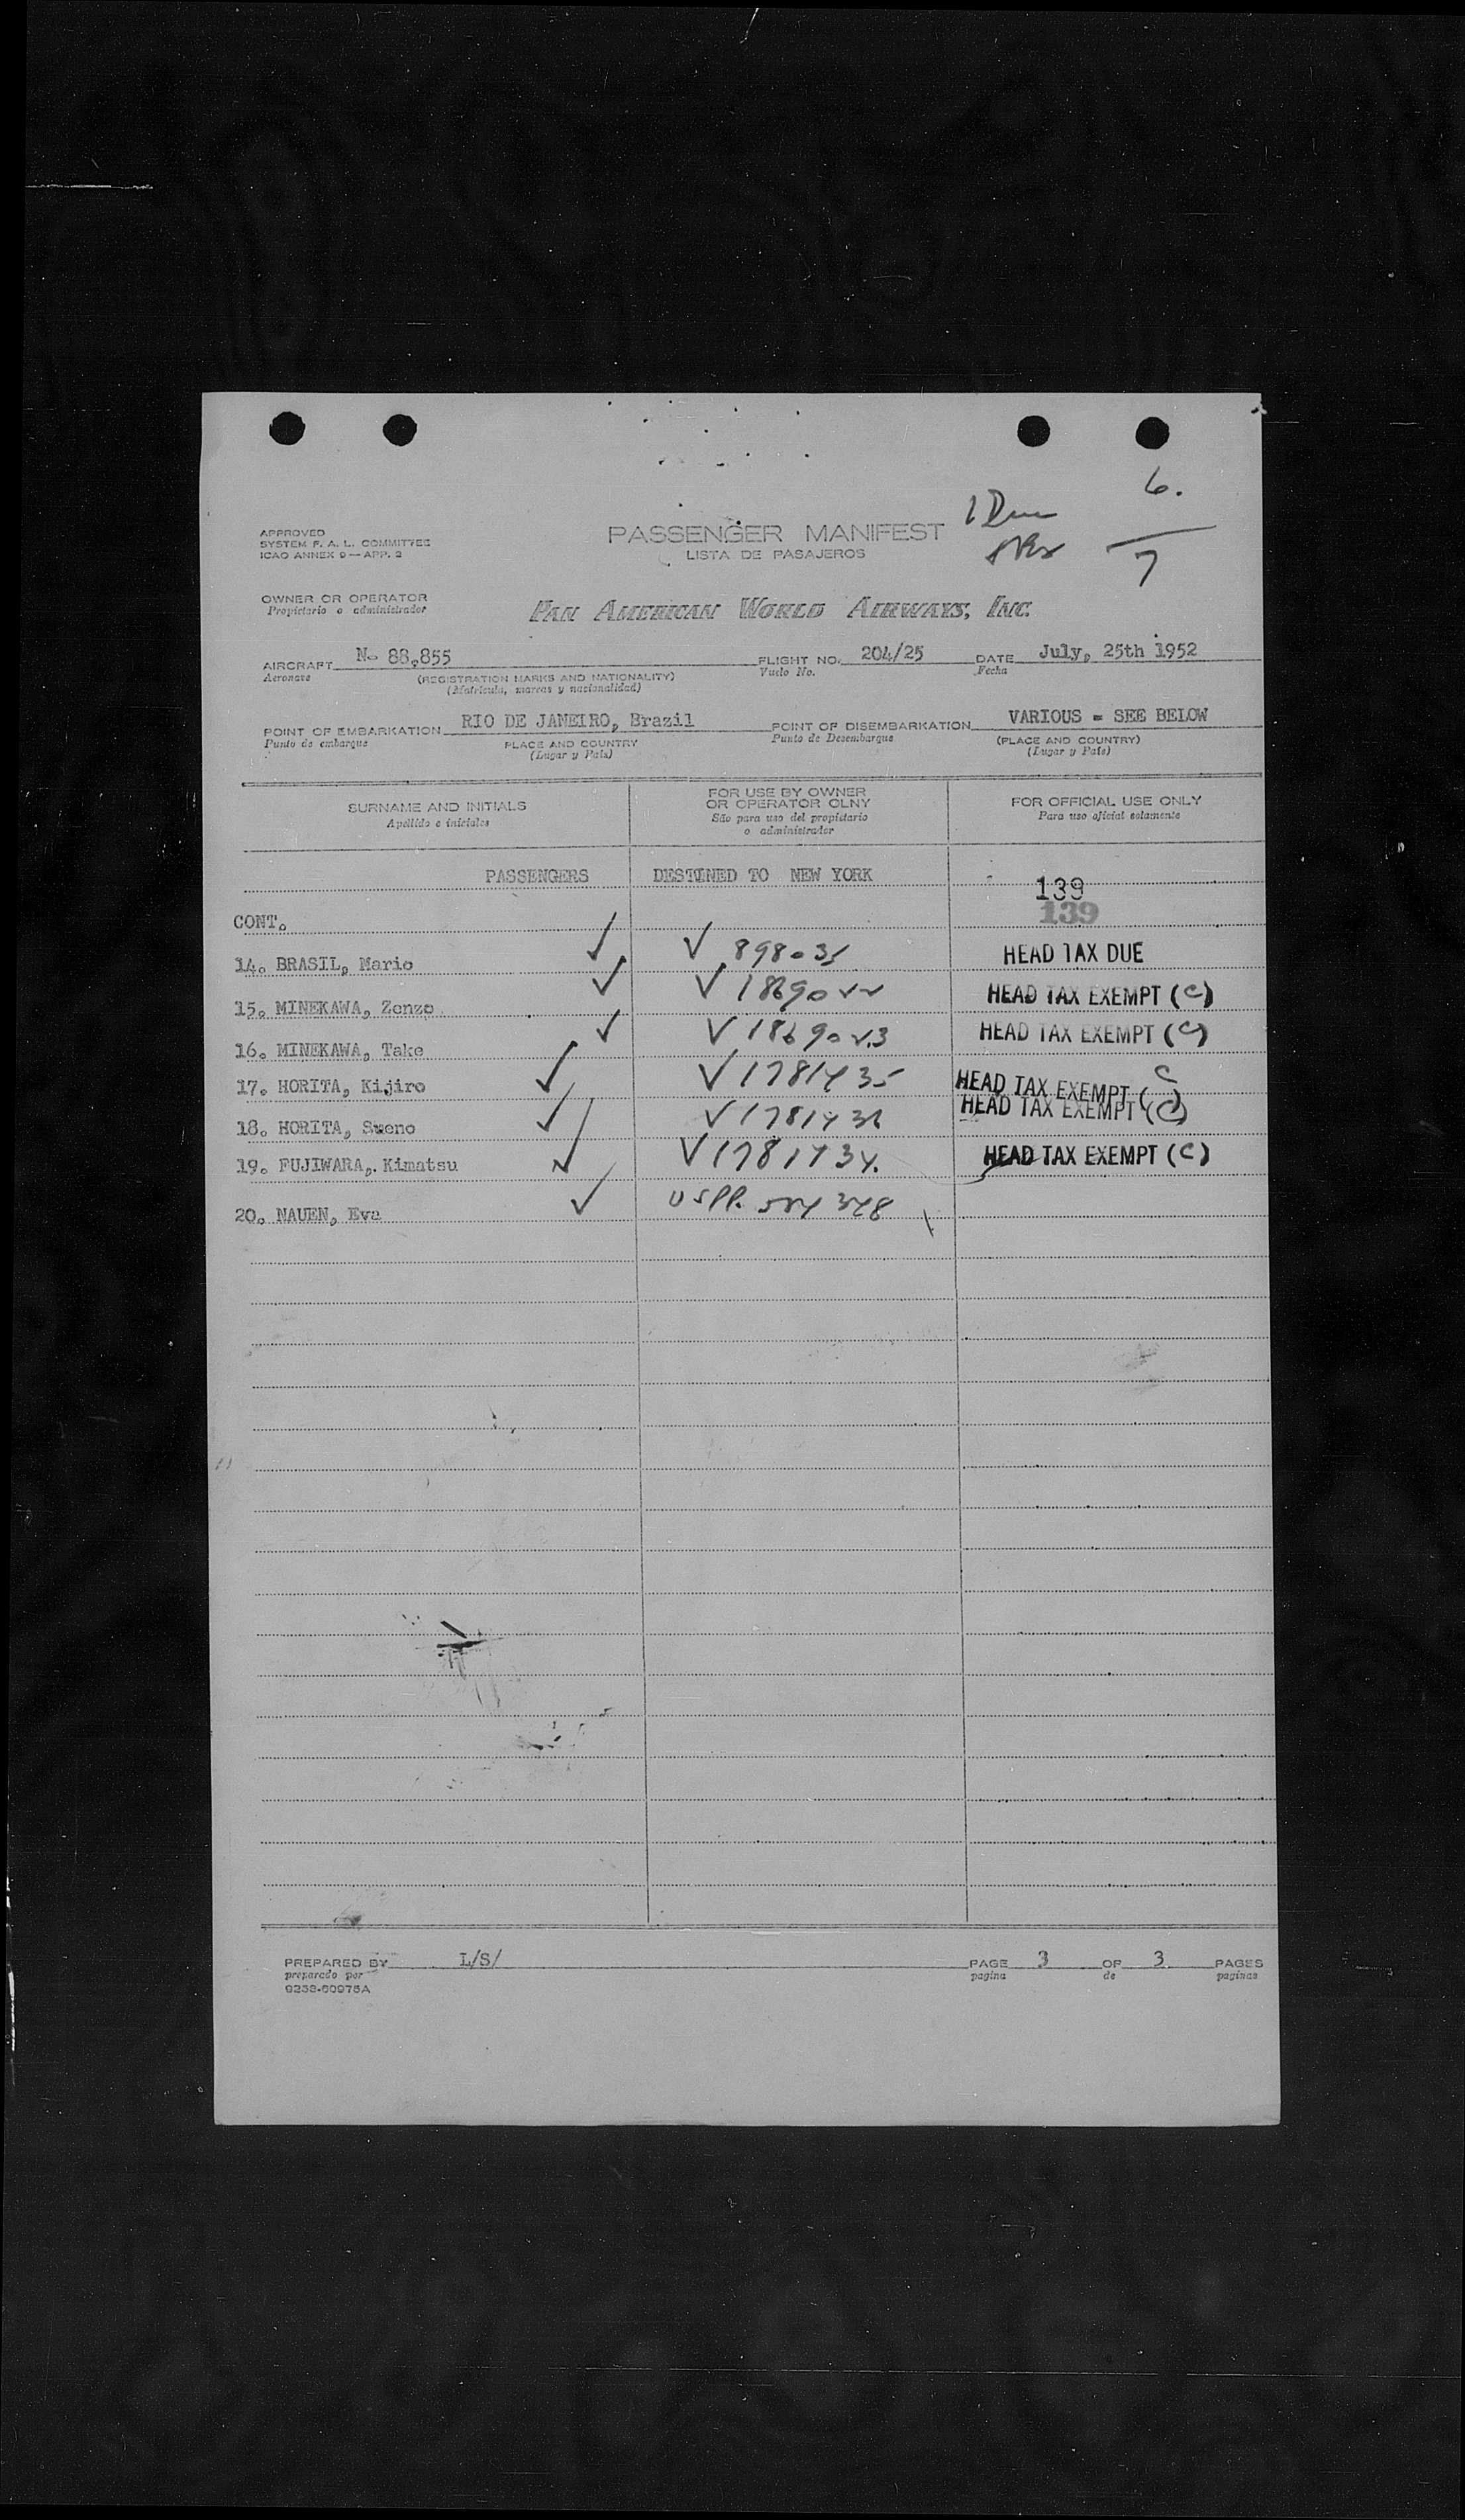 6.
1 Due
7
APPROVED
SYSTEM F. A. L. COMMITTEE
ICAO ANNEX 9—APP. 2
PASSENGER MANIFEST
LISTA DE PASAJEROS
OWNER OR OPERATOR
Propietario o administrador
PAN AMERICAN WORLD AIRWAYS, INC.
AIRCRAFT N- 88,855 FLIGHT NO. 204/25 DATE July, 25th 1952
Aeronave (REGISTRATION MARKS AND NATIONALITY) Vuelo No. Fecha
(Matricula, marcas y nacionalidad)
POINT OF EMBARKATION RIO DE JANEIRO, Brazil POINT OF DISEMBARKATION VARIOUS = SEE BELOW
Punto de embarque PLACE AND COUNTRY Punto de Desembarque (PLACE AND COUNTRY)
(Lugar y País) (Lugar y País)
SURNAME AND INITIALS FOR USE BY OWNER OR OPERATOR OLNY FOR OFFICIAL USE ONLY
Apellido e iniciales São para uso del propietario o administrador Para uso oficial solamente
PASSENGERS DESTINED TO NEW YORK 139
CONT. 139
14. BRASIL, Mario ✓ ✓ 898035 HEAD TAX DUE
15. MINEKAWA, Zenzo ✓ ✓ 1869022 HEAD TAX EXEMPT (C)
16. MINEKAWA, Take ✓ ✓ 1869023 HEAD TAX EXEMPT (C)
17. HORITA, Kijiro ✓ ✓ 1781435 HEAD TAX EXEMPT (C)
18. HORITA, Sueno ✓ ✓ 1781436 HEAD TAX EXEMPT (C)
19. FUJIWARA, Kimatsu ✓ ✓ 1781434. HEAD TAX EXEMPT (C)
20. NAUEN, Eva ✓ USPP. 524348
PREPARED BY L/S/ PAGE 3 OF 3 PAGES
preparado por pagina de paginas
9258-60975A